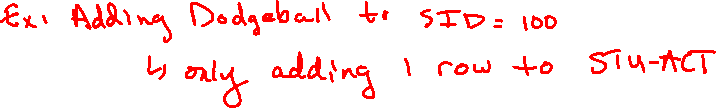 Ex. Adding Dodgeball to SID = 100
↳ only adding 1 row to STU-ACT